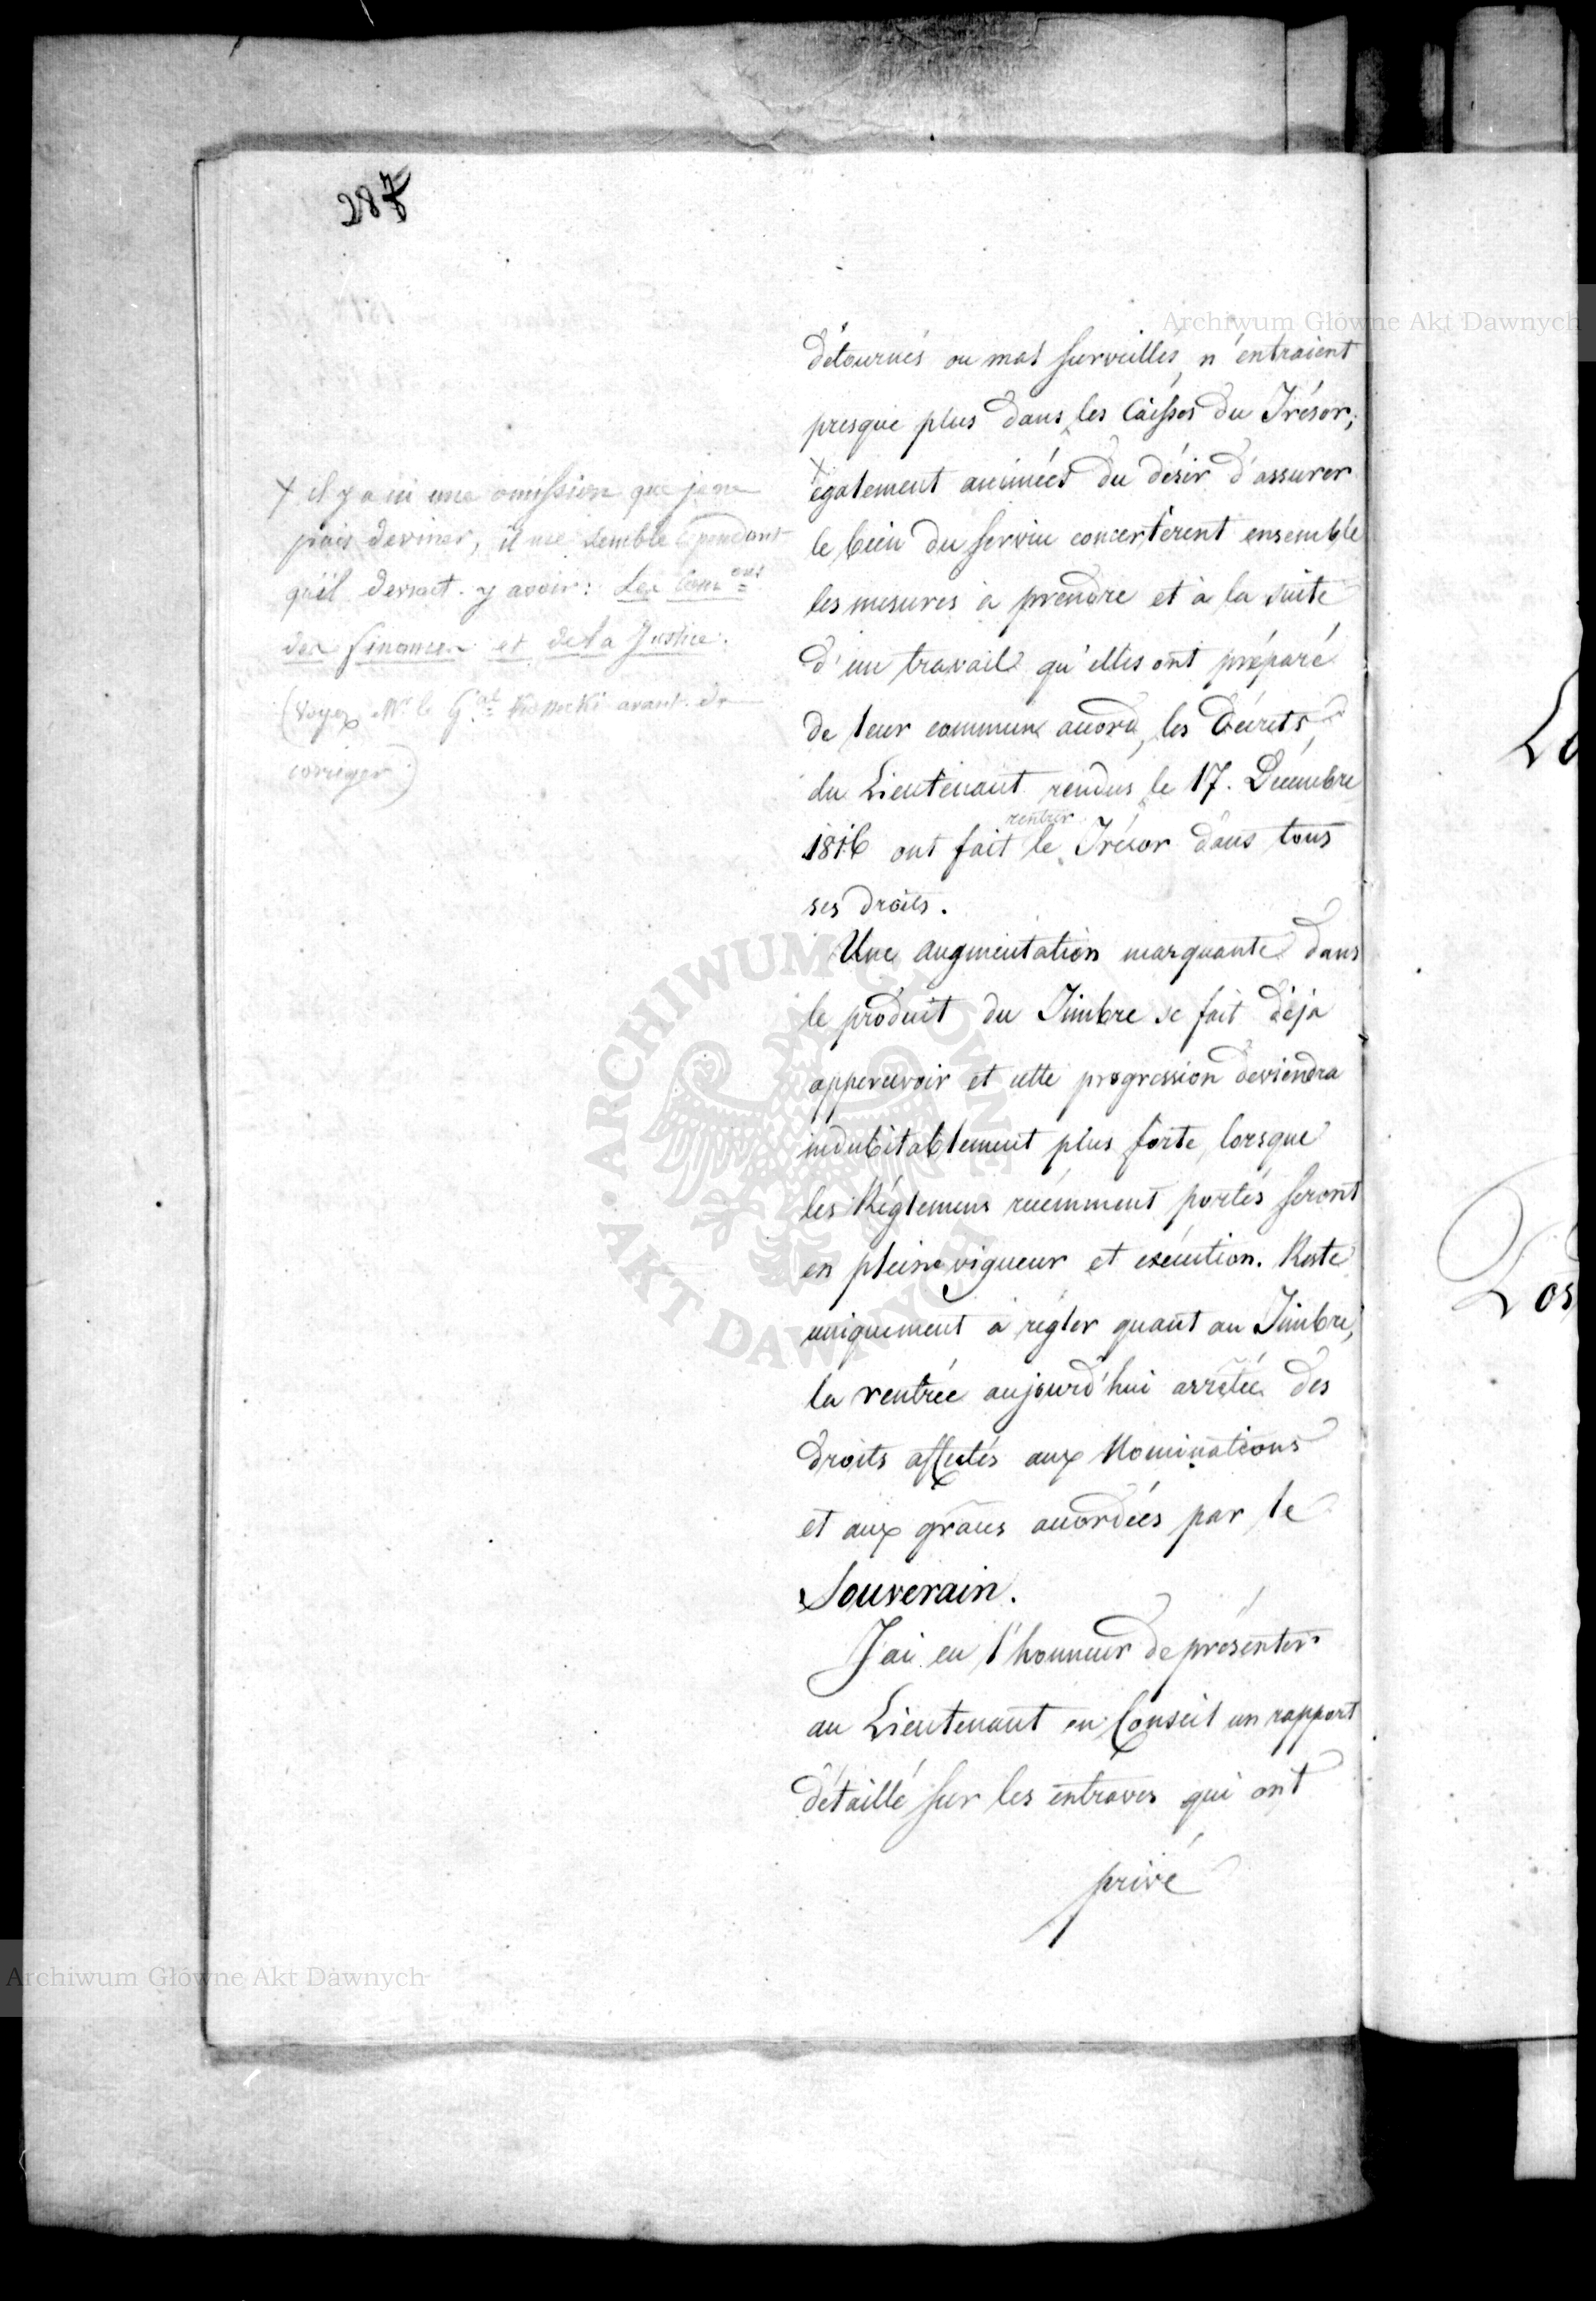 287
Archiwum Główne Akt Dawnych
détournés ou mal surveillés, n'entraient
presque plus dans les Caisses du Trésor;
+
également animées du désir d'assurer
le bien du service concertèrent ensemble
les mesures à prendre et à la suite
d'un travail qu'elles ont préparé
de leur commun accord, les Décrets
du Lieutenant rendus le 17. Décembre
rentrer
1816 ont fait le Trésor dans tous
ses droits.
Une augmentation marquante dans
le produit du Timbre se fait déja
appercevoir et cette progression deviendra
indubitablement plus forte, lorsque
les Réglemens récémment portés seront
en pleine vigueur et exécution. Reste
uniquement à régler quant au Timbre,
la rentrée aujourd'hui arrêtée des
droits affectés aux Nominations
et aux graces accordées par le
Souverain.
J'ai eu l'honneur de présenter
au Lieutenant en Conseil un rapport
détaillé sur les entraves qui ont
privé
+ il y a ici une omission que je ne
puis deviner, il me semble cependant
qu'il devroit y avoir: Les Com=ons
des finances et de la Justice.
(Voyez Mr. le Gal avant de
corriger)
ARCHIWUM GŁÓWNE
AKT DAWNYCH
Archiwum Główne Akt Dawnych